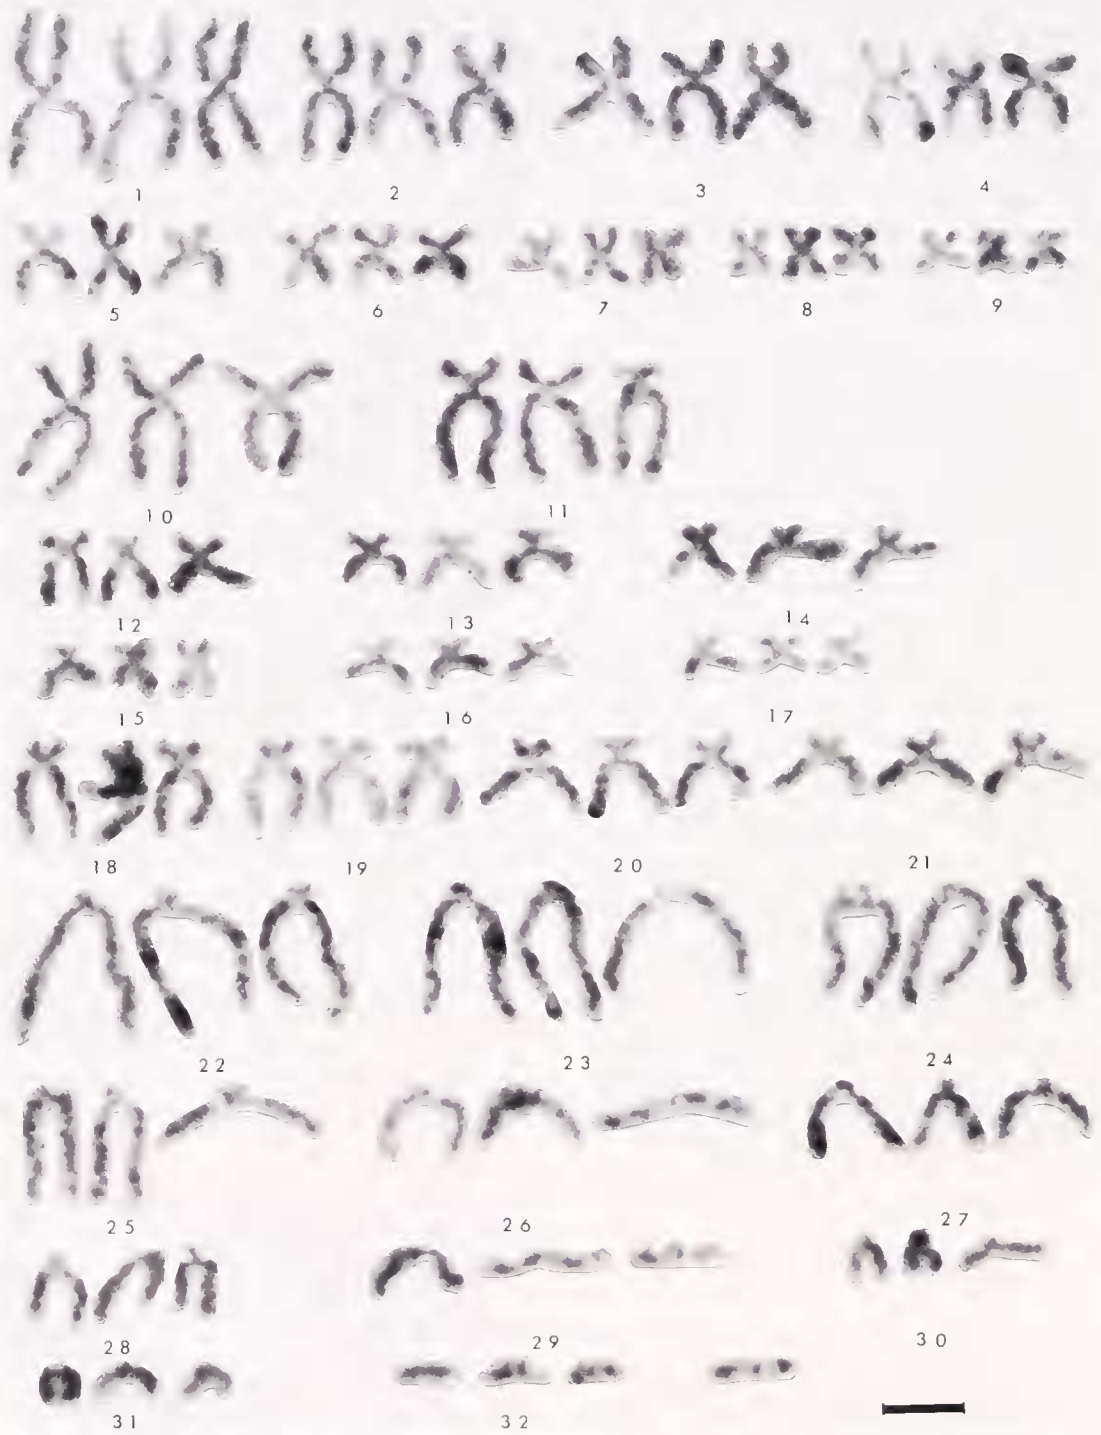 1 2 3 4
5 6 7 8 9
10 11
12 13 14
15 16 17
18 19 20 21
22 23 24
25 26 27
28 29 30
31 32